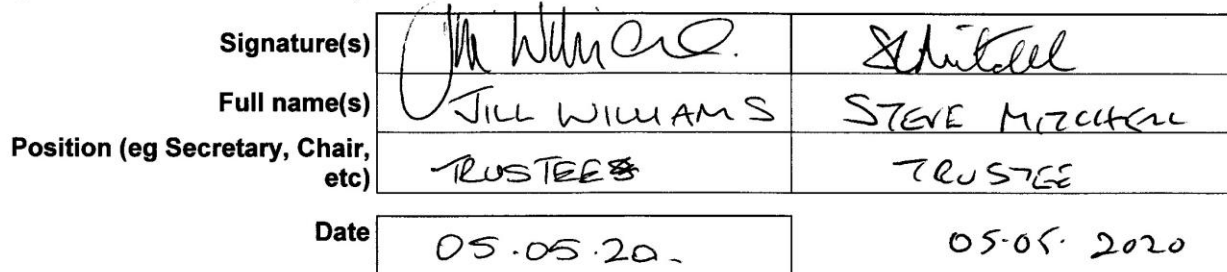 Signature(s) Jill Williams. SMitchell
Full name(s) JILL WILLIAMS STEVE MITCHELL
Position (eg Secretary, Chair,
etc) TRUSTEE TRUSTEE
Date 05.05.20. 05.05.2020